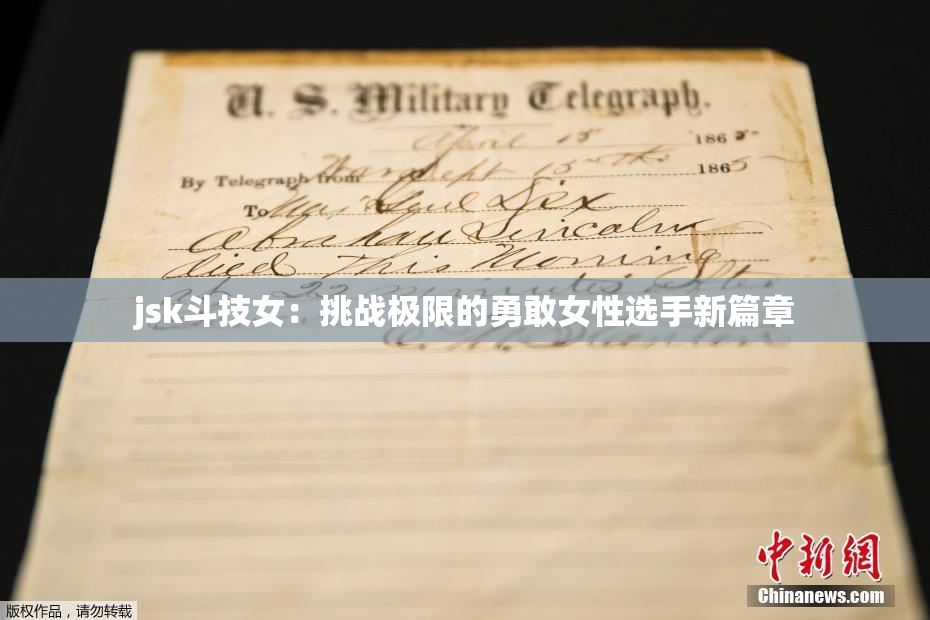 U. S. Military Telegraph.
April 15 1865
By Telegraph from War Dept 15th 1865
To Maj Genl Dix
Abraham Lincoln
died This Morning
at 22 minutes after
jsk斗技女：挑战极限的勇敢女性选手新篇章
E. M. Stanton
中新网
Chinanews.com
版权作品，请勿转载